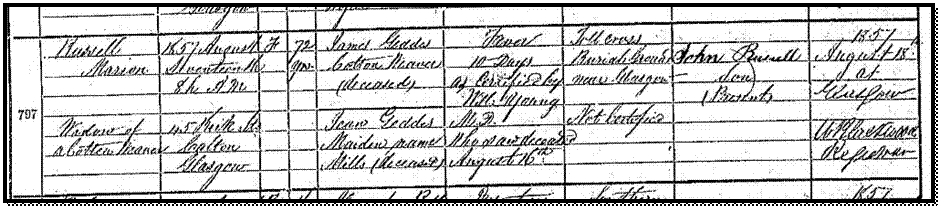 797
Russell
Marion
Widow of
a Cotton Weaver
1857 August
Seventeenth
8h A.M.
45 Kirk St.
Calton
Glasgow
F
72
yrs.
James Geddes
Cotton Weaver
(deceased)
Jean Geddes
Maiden name
Mills (deceased)
Fever
10 Days
as Certified by
Wm. Young
M.D.
Who saw deceased
August 16th
Tollcross
Burial Ground
near Glasgow
Not Certified
John Russell
Son
(Present)
1857
August 18th
at
Glasgow
Registrar
1857